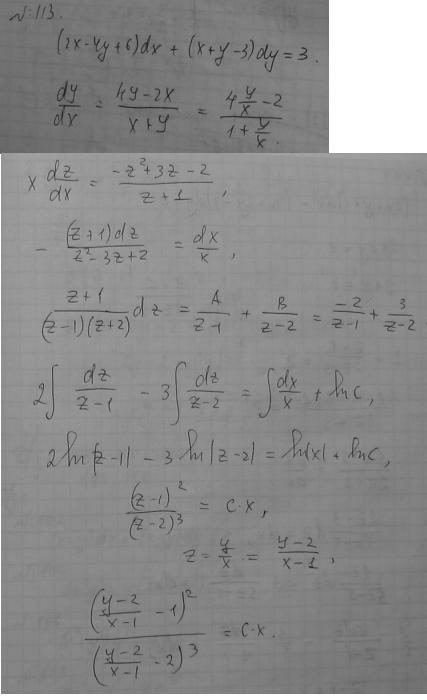 №113.
(2x-4y+6)dx + (x+y-3)dy = 3.
dy/dx = (4y-2x)/(x+y) = (4 y/x - 2)/(1 + y/x).
x dz/dx = (-z²+3z-2)/(z+1),
- (z+1)dz/(z²-3z+2) = dx/x,
(z+1)/((z-1)(z+2)) dz = A/(z-1) + B/(z-2) = -2/(z-1) + 3/(z-2)
2∫ dz/(z-1) - 3∫ dz/(z-2) = ∫ dx/x + ln c,
2 ln|z-1| - 3 ln|z-2| = ln|x| + ln c,
(z-1)²/(z-2)³ = c·x,
z = y/x = (y-2)/(x-1),
((y-2)/(x-1) - 1)² / ((y-2)/(x-1) - 2)³ = c·x.